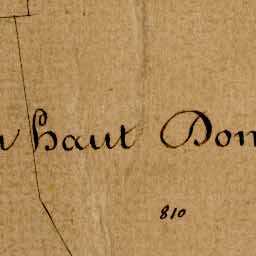 haut Don
810